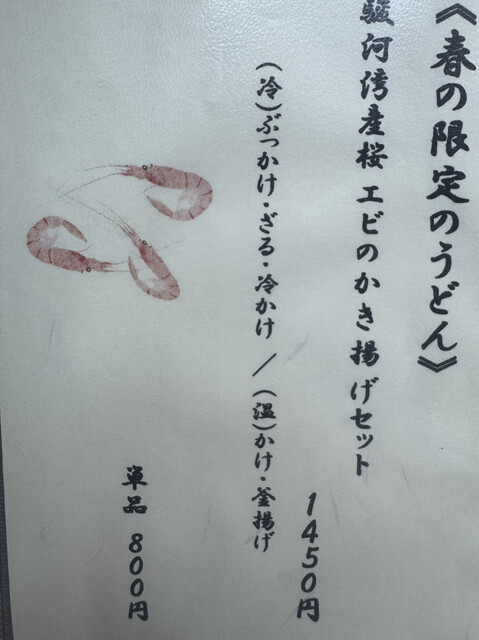 《春の限定のうどん》
駿河湾産桜エビのかき揚げセット
1450円
(冷)ぶっかけ・ざる・冷かけ／(温)かけ・釜揚げ
単品 800円